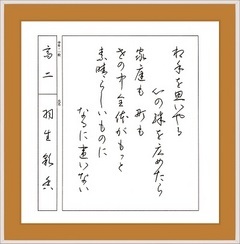 相手を思いやる
心の緑を広めたら
家庭も 町も
世の中全体がもっと
素晴らしいものに
なるに違いない
高二
羽生